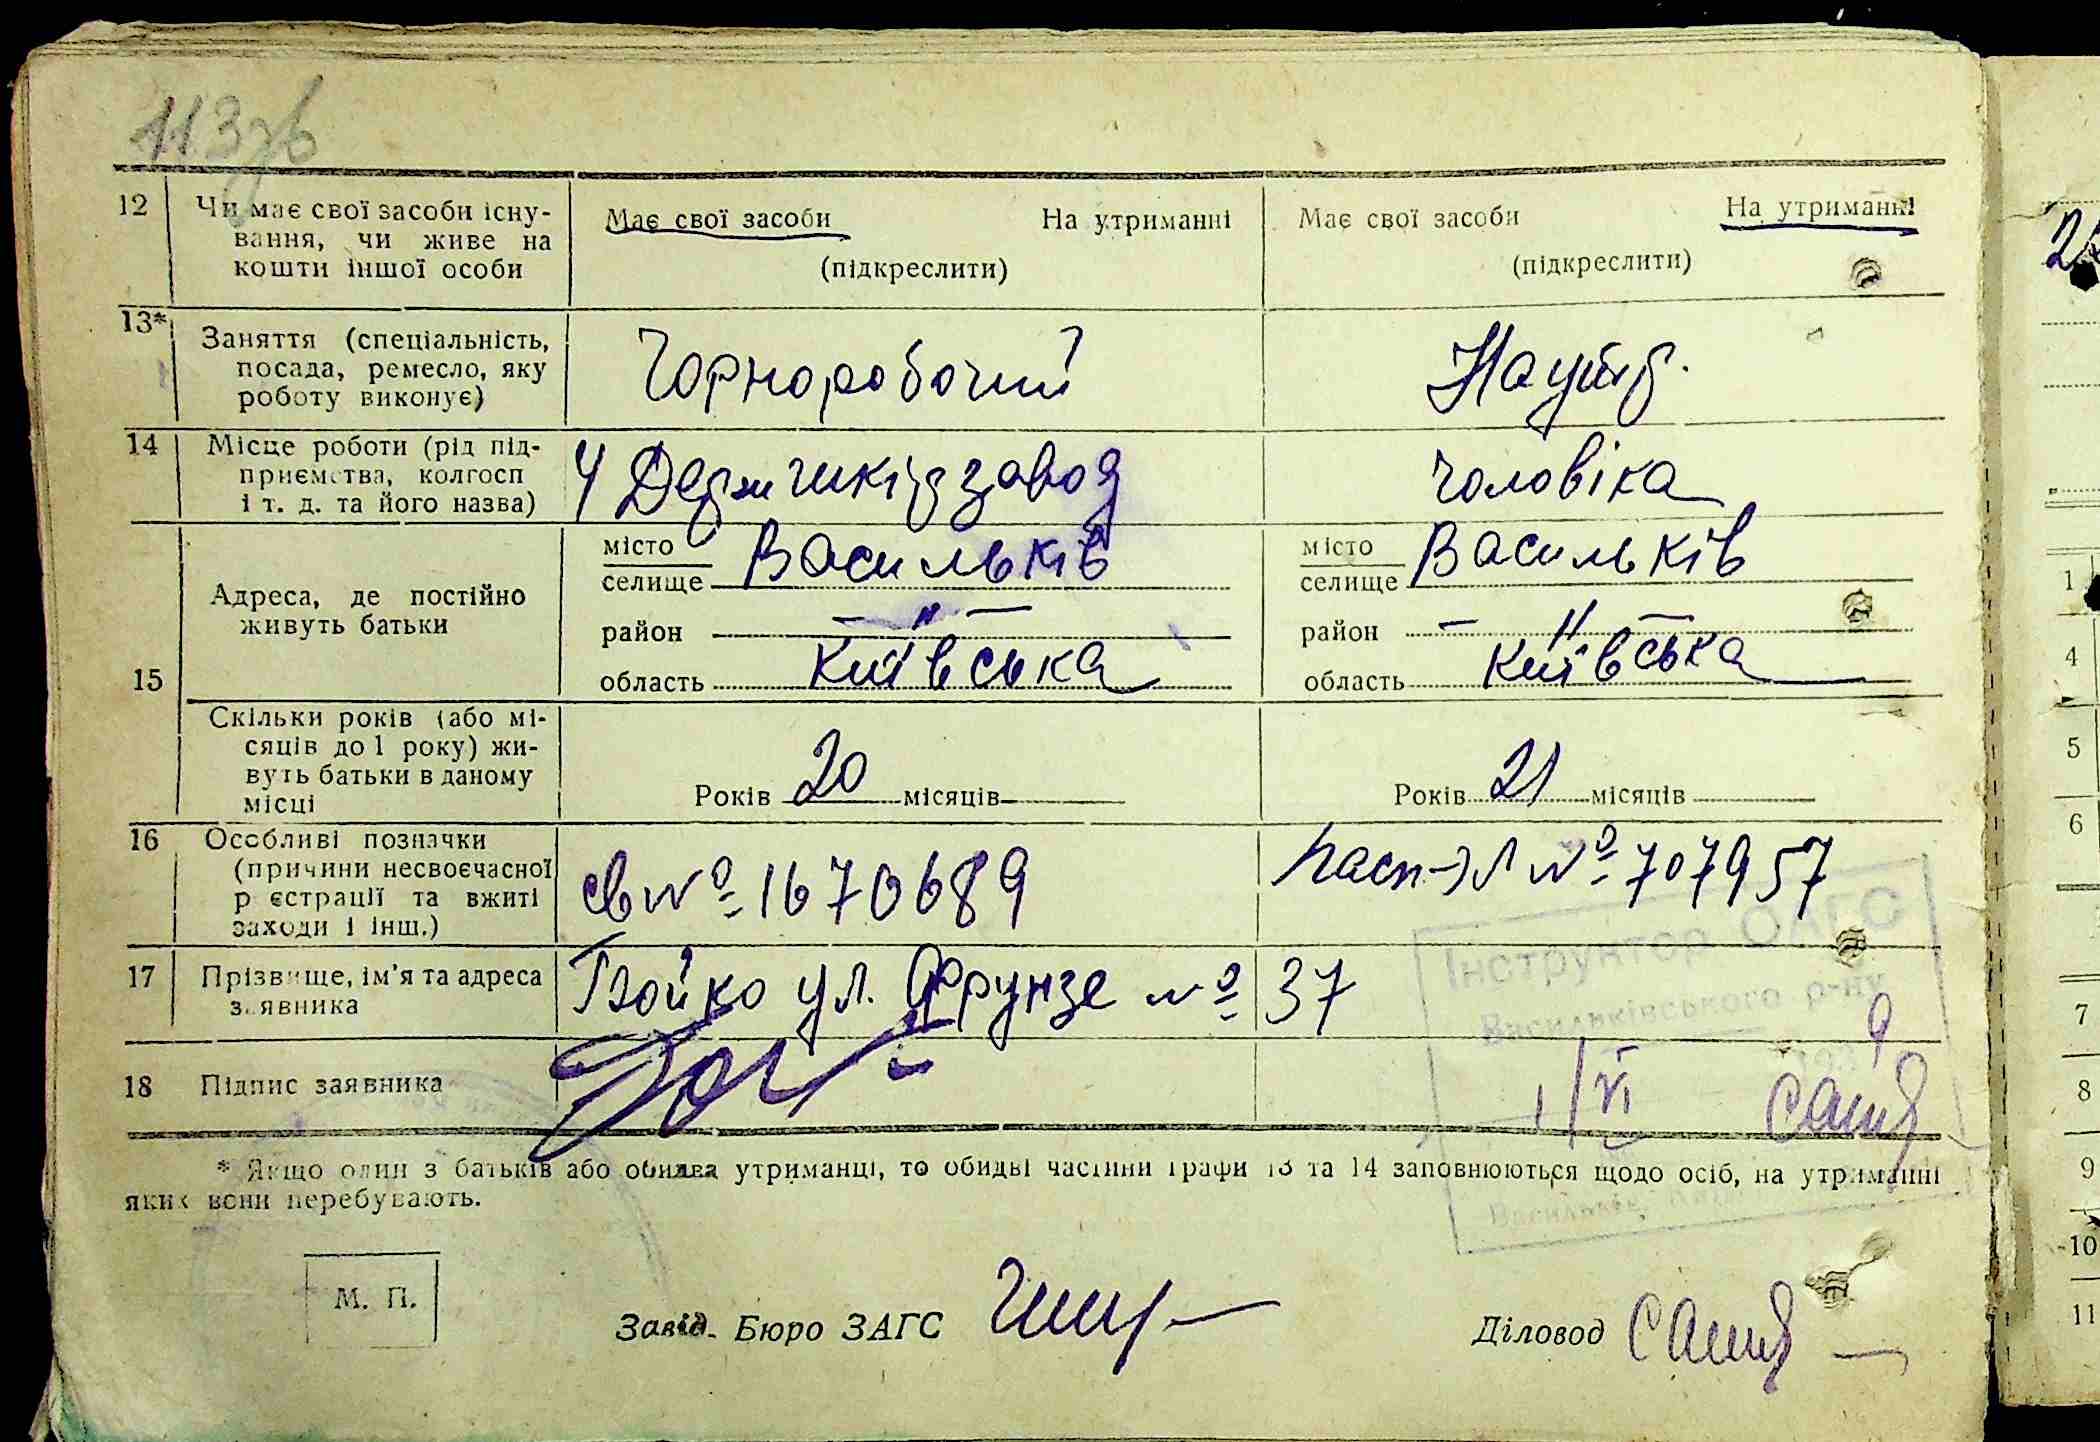 113зв
12 Чи має свої засоби існу-
вання, чи живе на
кошти іншої особи
Має свої засоби На утриманні
(підкреслити)
Має свої засоби На утриманні
(підкреслити)
13* Заняття (спеціальність,
посада, ремесло, яку
роботу виконує)
Чорноробочий
На утр.
14 Місце роботи (рід під-
приємства, колгосп
і т. д. та його назва)
завод
чоловіка
15
Адреса, де постійно
живуть батьки
місто
селище Васильків
район — " —
область Київська
місто
селище Васильків
район — " —
область Київська
Скільки років (або мі-
сяців до 1 року) жи-
вуть батьки в даному
місці
Років 20 місяців
Років 21 місяців
16 Особливі позначки
(причини несвоєчасної
реєстрації та вжиті
заходи і інш.)
св № 1670689
№ 707957
17 Прізвище, ім'я та адреса
заявника
Бойко ул. Фрунзе № 37
18 Підпис заявника
Інструктор ОАГС
Васильківського р-ну
1/VI
* Якщо один з батьків або обидва утриманці, то обидві частини графи 13 та 14 заповнюються щодо осіб, на утриманні
яких вони перебувають.
М. П.
Завід. Бюро ЗАГС
Діловод
1
4
5
6
7
8
9
10
11